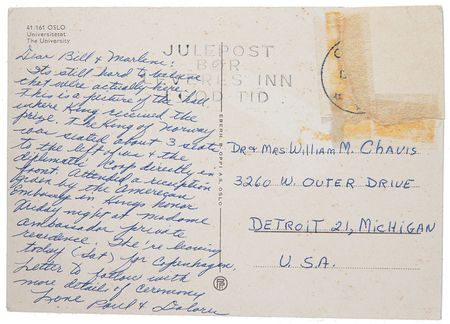 41/161 OSLO
Universitetet
The University
Dear Bill & Marlene:
Its still hard to believe
that we're actually here.
This is a picture of the hall
where King received the
prize. The King of Norway
was seated about 3 seats
to the left of us & the
diplomatic corps directly in
front. Attended a reception
given by the American
Embassy in Kings honor
Friday night at madame
ambassador private
residence. She're leaving
today (Sat) for Copenhagen,
Letter to follow with
more details of ceremony
Love Paul & Dolores
JULEPOST
BØR
LEVERES INN
GOD TID
OSLO
DR & MRS WILLIAM M. CHAVIS
3260 W. OUTER DRIVE
DETROIT 21, MICHIGAN
U.S.A.